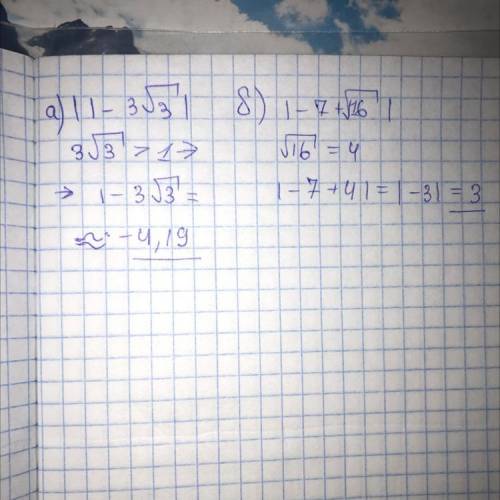 а) |1 - 3√3|
3√3 > 1 →
→ 1 - 3√3 =
≈ -4,19
б) |-7 + √16|
√16 = 4
|-7 + 4| = |-3| = 3